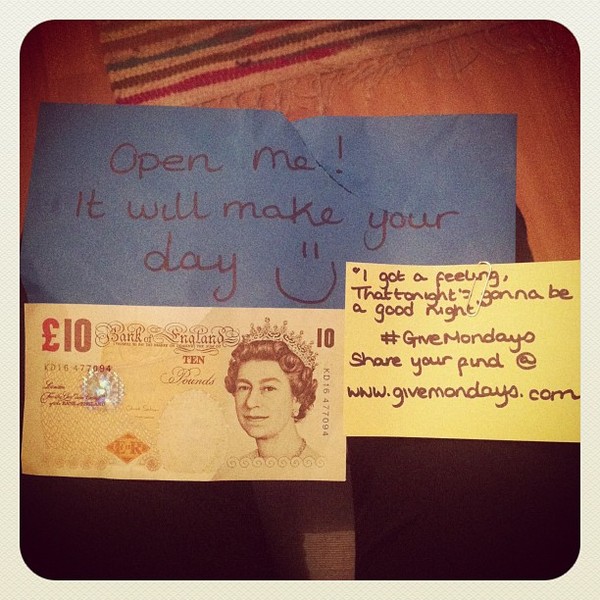 Open me!
It will make your
day
"I got a feeling,
That tonight's gonna be
a good night
#GiveMondays
Share your find @
www.givemondays.com
£10 Bank of England 10
TEN
Pounds
KD16 477094
London
KD16 477094